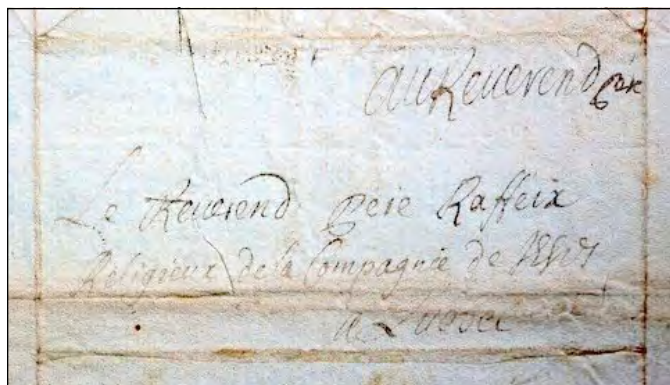 Au Reuerend Père
Le Reuerend Pere Raffeix
Religieux de la Compagnie de Jesus
a